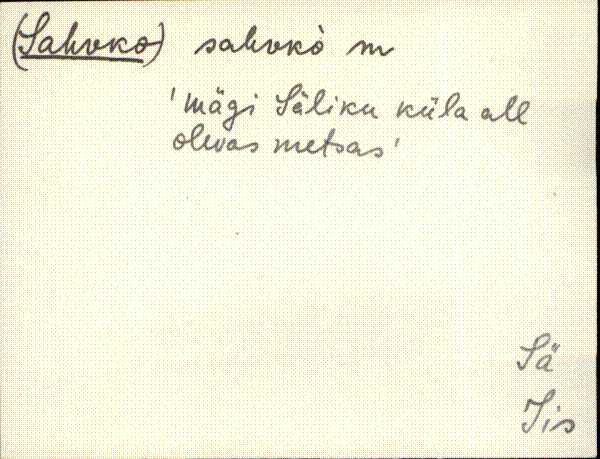 (Sahvko) sahvkò m
'mägi Säliku küla all
olevas metsas'
Sä
Iis